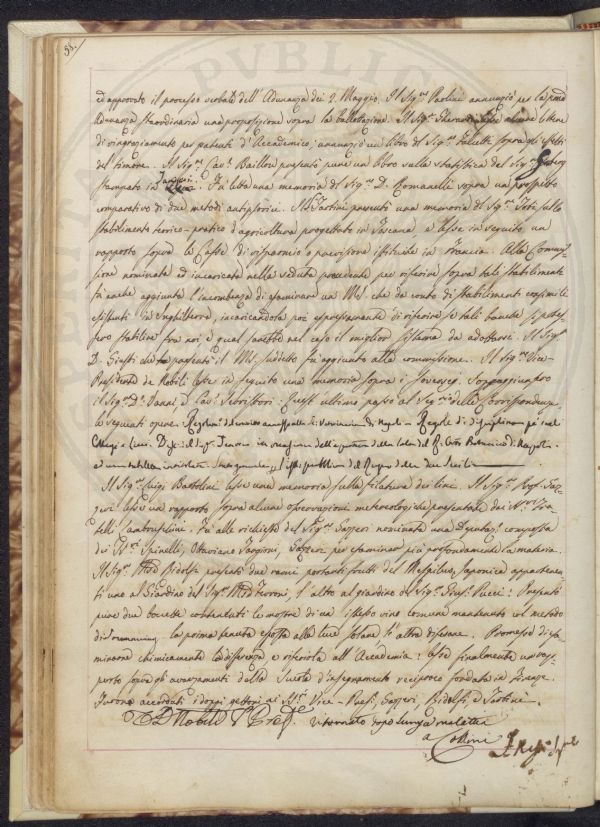 58.
ed approvato il processo verbale dell'Adunanza dei 2. Maggio. Il Sig.re Paolini annunziò per la
Adunanza straordinaria una proposizione sopra la ballottazione. Il Sig.re alcune lettere
di ringraziamento per patenti d'Accademico, annunziò un libro del Sig.re sopra gli effetti
del timore. Il Sig.re Cav.e Baillou presentò pure un libro sulla statistica del Sig.re
stampato in . Fu letta una memoria del Sig.re D. Romanelli sopra un prospetto
comparativo di due metodi antipsorici. Il S. Tartini presentò una memoria del Sig.re sullo
stabilimento teorico-pratico d'agricoltura progettato in Toscana, e lesse in seguito un
rapporto sopra le Casse di risparmio e previsione istituite in Francia. Alla Commis-
sione nominata ed incaricata nella seduta precedente per riferire sopra tali stabilimenti
fù anche aggiunta l'incombenza di esaminare un MS. che dà conto di stabilimenti consimili
esistenti in Inghilterra, incaricandola poi espressamente di riferire se tali banche si potes-
sero stabilire fra noi e qual sarebbe nel caso il miglior sistema da adottarsi. Il Sig.re
D. Giusti che presentò il MS. suddetto fù aggiunto alla commissione. Il Sig.re Vice-
Presidente de Nobili lesse in seguito una memoria sopra i sovesci. Soggiunsero
il Sig.re D. Vanni, e Cav. Scrittori. Quest'ultimo passò al Seg.rio delle Corrispondenze
le seguenti opere: Regolam. Napoli - Regole di disciplina pei reali
Collegi e Licei. Disc. del Sig. Tenore in occasione dell'apertura della scuola del R. Orto Botanico di Napoli.
del Regno delle due Sicilie
Il Sig.re Luigi Bartolini lesse una memoria sulla filatura dei lini. Il Sig.re Prof. Gaz-
zeri lesse un rapporto sopra alcune osservazioni meteorologiche presentate dai
. Fù alle richieste del Sig.re Gazzeri nominata una Deputaz. composta
dei SS.ri Spinelli, Ottaviano Targioni, Gazzeri per esaminar più profondamente la materia.
Il Sig.re Ridolfi presentò due rami portanti frutti del Mespilus Japonica appartenen-
ti uno al Giardino del Sig.re Feroni, l'altro al giardino del Sig.re Pucci: Presentò
pure due boccette contenenti le mostre di un istesso vino comune mantenuto col metodo
di la prima tenuta esposta alla luce solare l'altra difesane. Promesse d'esa-
minarne chimicamente la differenza e riferirla all'Accademia: lesse finalmente un rap-
porto sopra gli avanzamenti della Scuola d'insegnamento reciproco fondata in Firenze.
Furono accordati i doppi gettoni ai SS.ri Vice-Presi. Gazzeri, Ridolfi, e Tartini.
De Nobili V. Pres.e ritornato dopo lunga malattia
a Collini